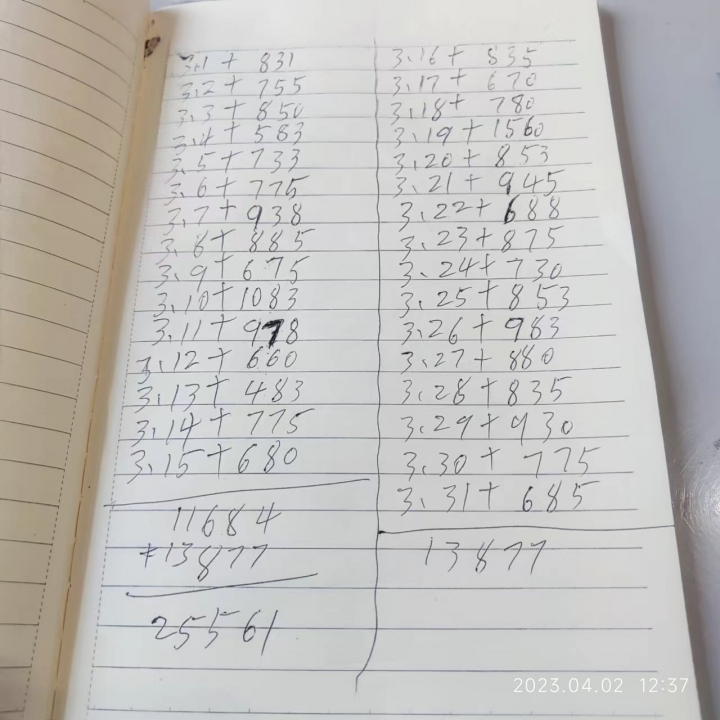 3.1+ 831
3.2+ 755
3.3+ 850
3.4+ 583
3.5+733
3.6+ 775
3.7+938
3.8+ 885
3.9+675
3.10+1083
3.11+978
3.12+ 660
3.13+ 483
3.14+775
3.15+680
11684
+13877
25561
3.16+ 835
3.17+ 670
3.18+ 780
3.19+1560
3.20+853
3.21+ 945
3.22+ 688
3.23+875
3.24+730
3.25+853
3.26+983
3.27+880
3.28+835
3.29+930
3.30+ 775
3.31+ 685
13877
2023.04.02 12:37